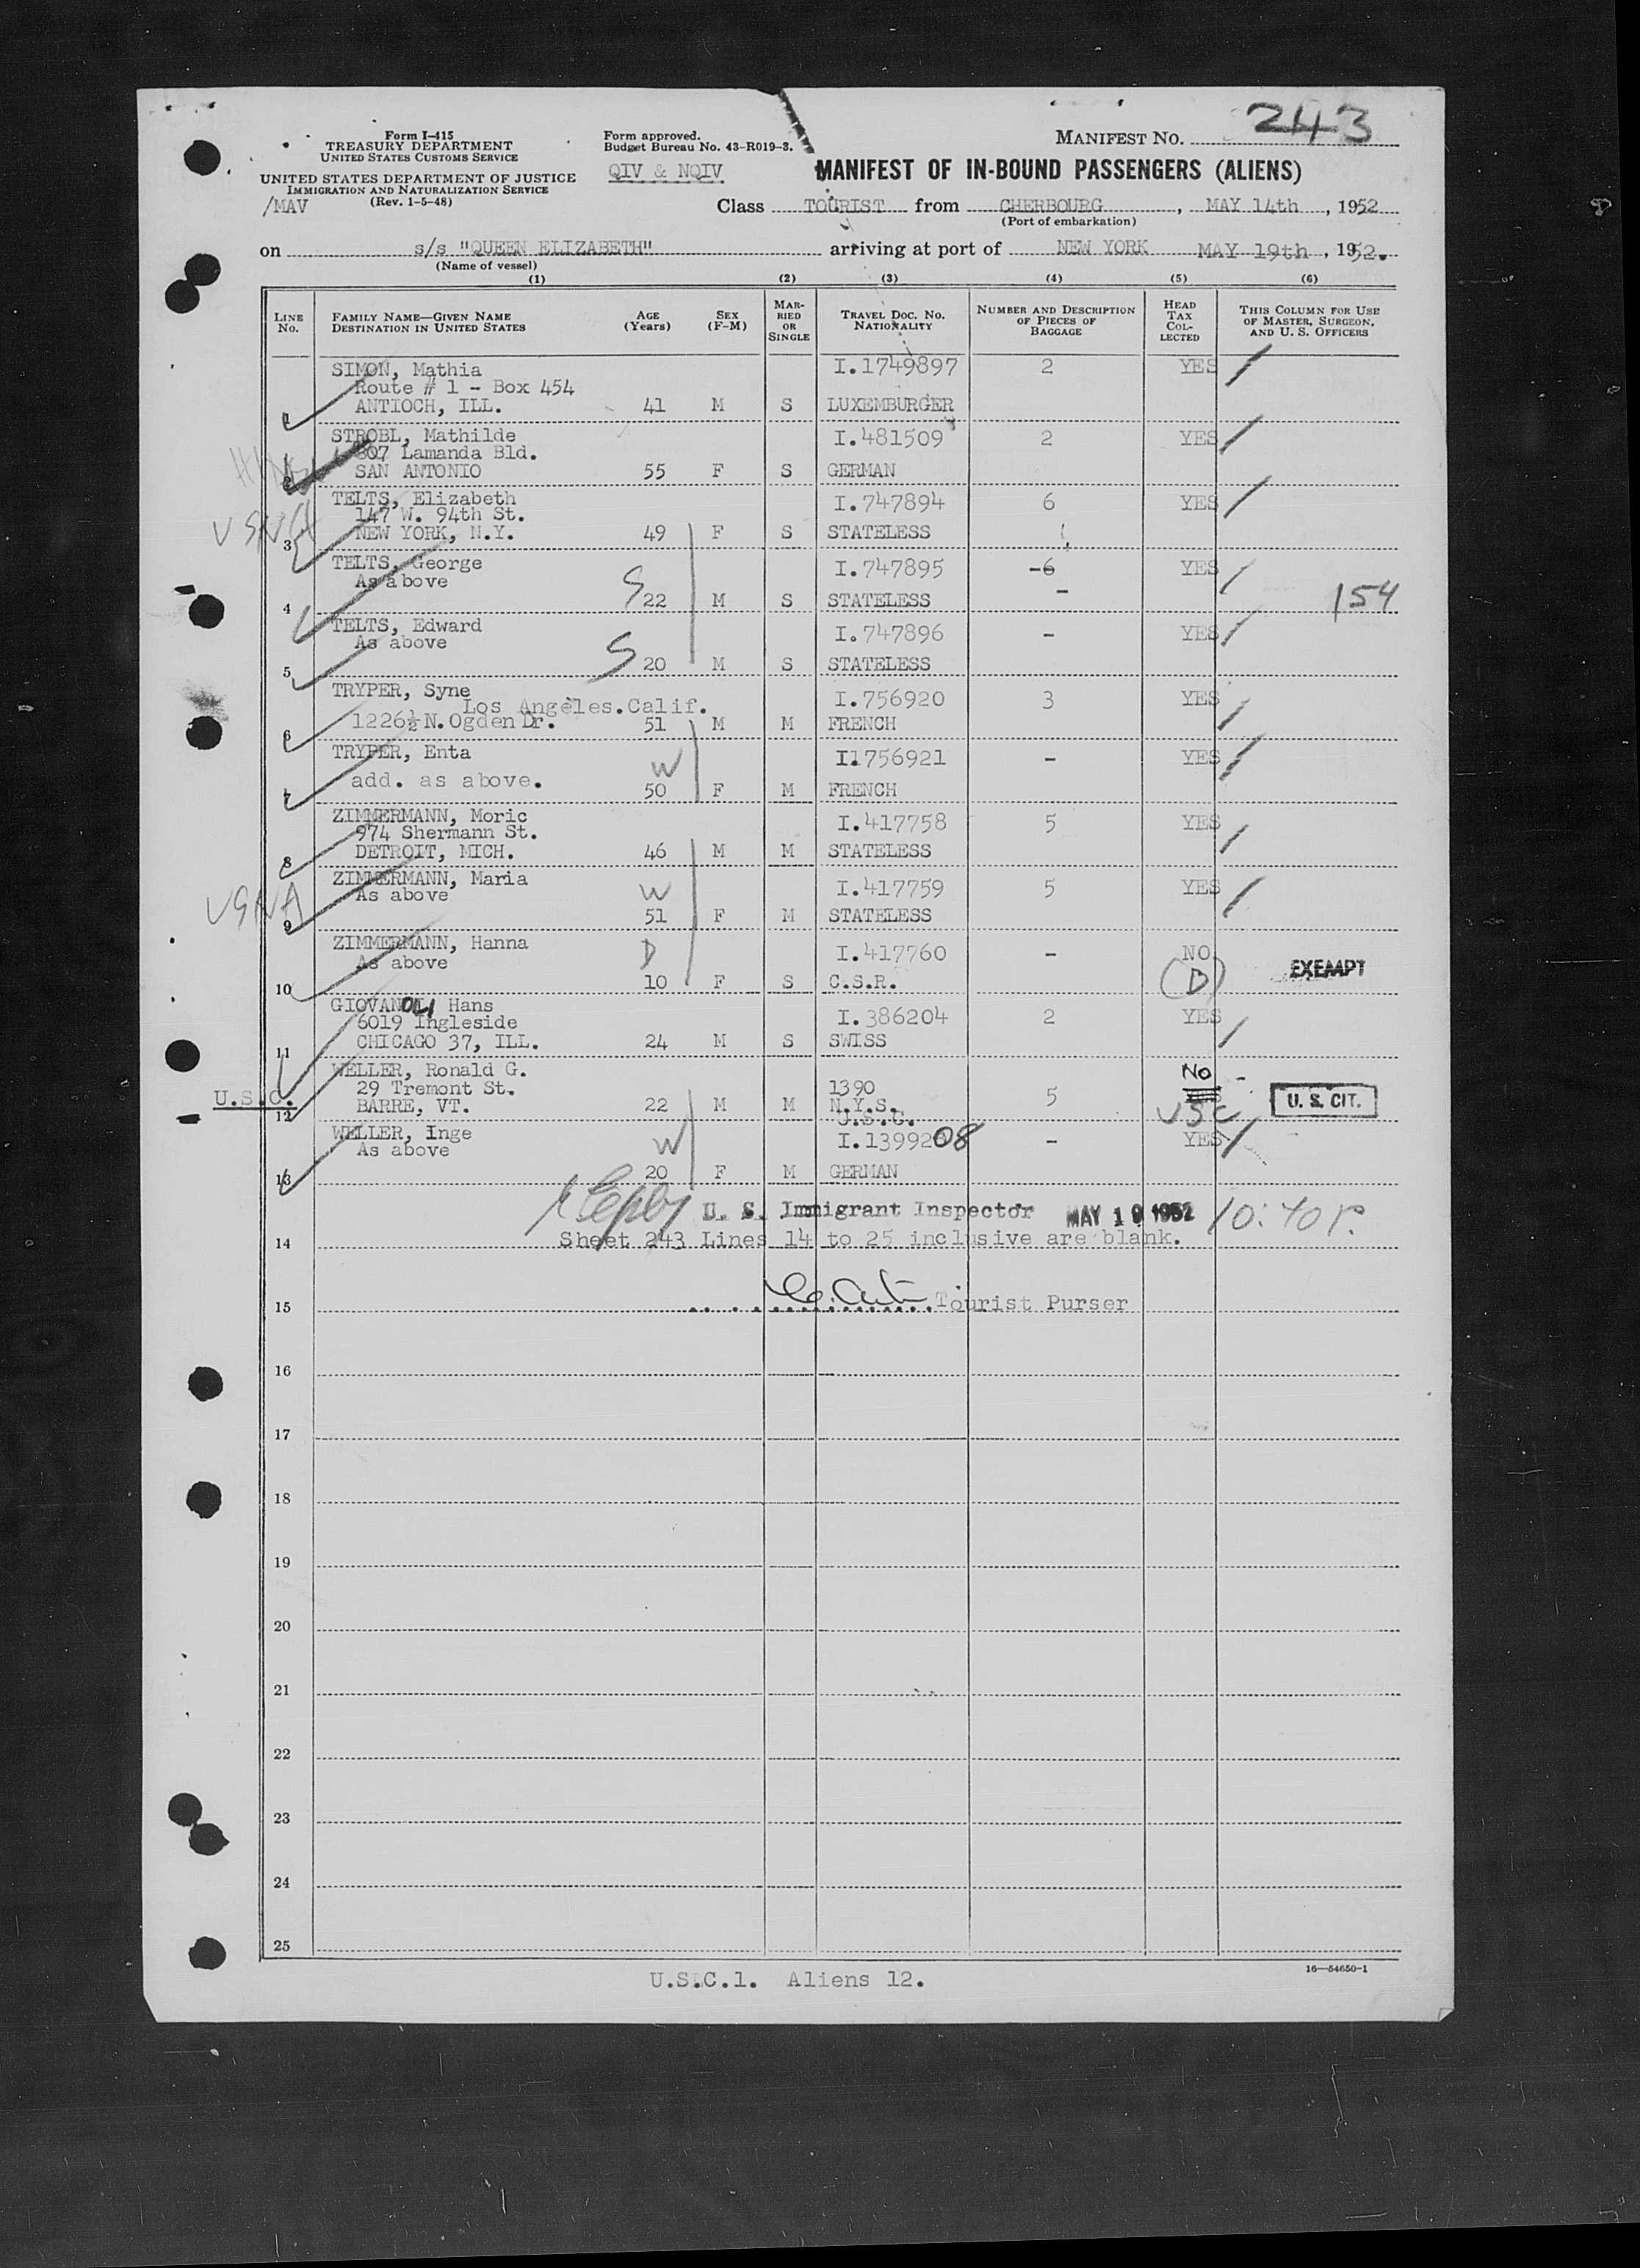 243
Form I-415
TREASURY DEPARTMENT
UNITED STATES CUSTOMS SERVICE
UNITED STATES DEPARTMENT OF JUSTICE
IMMIGRATION AND NATURALIZATION SERVICE
(Rev. 1-5-48)
/MAV
Form approved.
Budget Bureau No. 43-R019-3.
QIV & NQIV
MANIFEST NO.
MANIFEST OF IN-BOUND PASSENGERS (ALIENS)
Class TOURIST from CHERBOURG, MAY 14th, 1952
(Port of embarkation)
on s/s "QUEEN ELIZABETH" arriving at port of NEW YORK MAY 19th, 1952.
(Name of vessel)
(1) (2) (3) (4) (5) (6)
LINE No. FAMILY NAME—GIVEN NAME DESTINATION IN UNITED STATES AGE (Years) SEX (F-M) MARRIED OR SINGLE TRAVEL DOC. NO. NATIONALITY NUMBER AND DESCRIPTION OF PIECES OF BAGGAGE HEAD TAX COLLECTED THIS COLUMN FOR USE OF MASTER, SURGEON, AND U. S. OFFICERS
SIMON, Mathia I.1749897 2 YES
Route # 1 - Box 454
1 ANTIOCH, ILL. 41 M S LUXEMBURGER
STROBL, Mathilde I.481509 2 YES
807 Lamanda Bld.
2 SAN ANTONIO 55 F S GERMAN
TELTS, Elizabeth I.747894 6 YES
147 W. 94th St.
USNA
3 NEW YORK, N.Y. 49 F S STATELESS
TELTS, George I.747895 -6 YES
As above
S
4 22 M S STATELESS - 154
TELTS, Edward I.747896 - YES
As above
S
5 20 M S STATELESS
TRYPER, Syne I.756920 3 YES
Los Angeles.Calif.
6 1226½ N.Ogden Dr. 51 M M FRENCH
TRYPER, Enta I.756921 - YES
add. as above. W
7 50 F M FRENCH
ZIMMERMANN, Moric I.417758 5 YES
974 Shermann St.
8 DETROIT, MICH. 46 M M STATELESS
ZIMMERMANN, Maria I.417759 5 YES
As above W
USNA
9 51 F M STATELESS
ZIMMERMANN, Hanna I.417760 - NO
As above D (D) EXEMPT
10 10 F S C.S.R.
GIOVANOLI Hans I.386204 2 YES
6019 Ingleside
11 CHICAGO 37, ILL. 24 M S SWISS
WELLER, Ronald G. No
29 Tremont St. 1390 5
U.S.C. 12 BARRE, VT. 22 M M N.Y.S. USC U. S. CIT.
U.S.C.
WELLER, Inge I.1399208 - YES
As above W
13 20 F M GERMAN
U. S. Immigrant Inspector MAY 19 1952 10:40 P.
14 Sheet 243 Lines 14 to 25 inclusive are blank.
15 Tourist Purser
16
17
18
19
20
21
22
23
24
25
U.S.C.1. Aliens 12.
16—54650-1